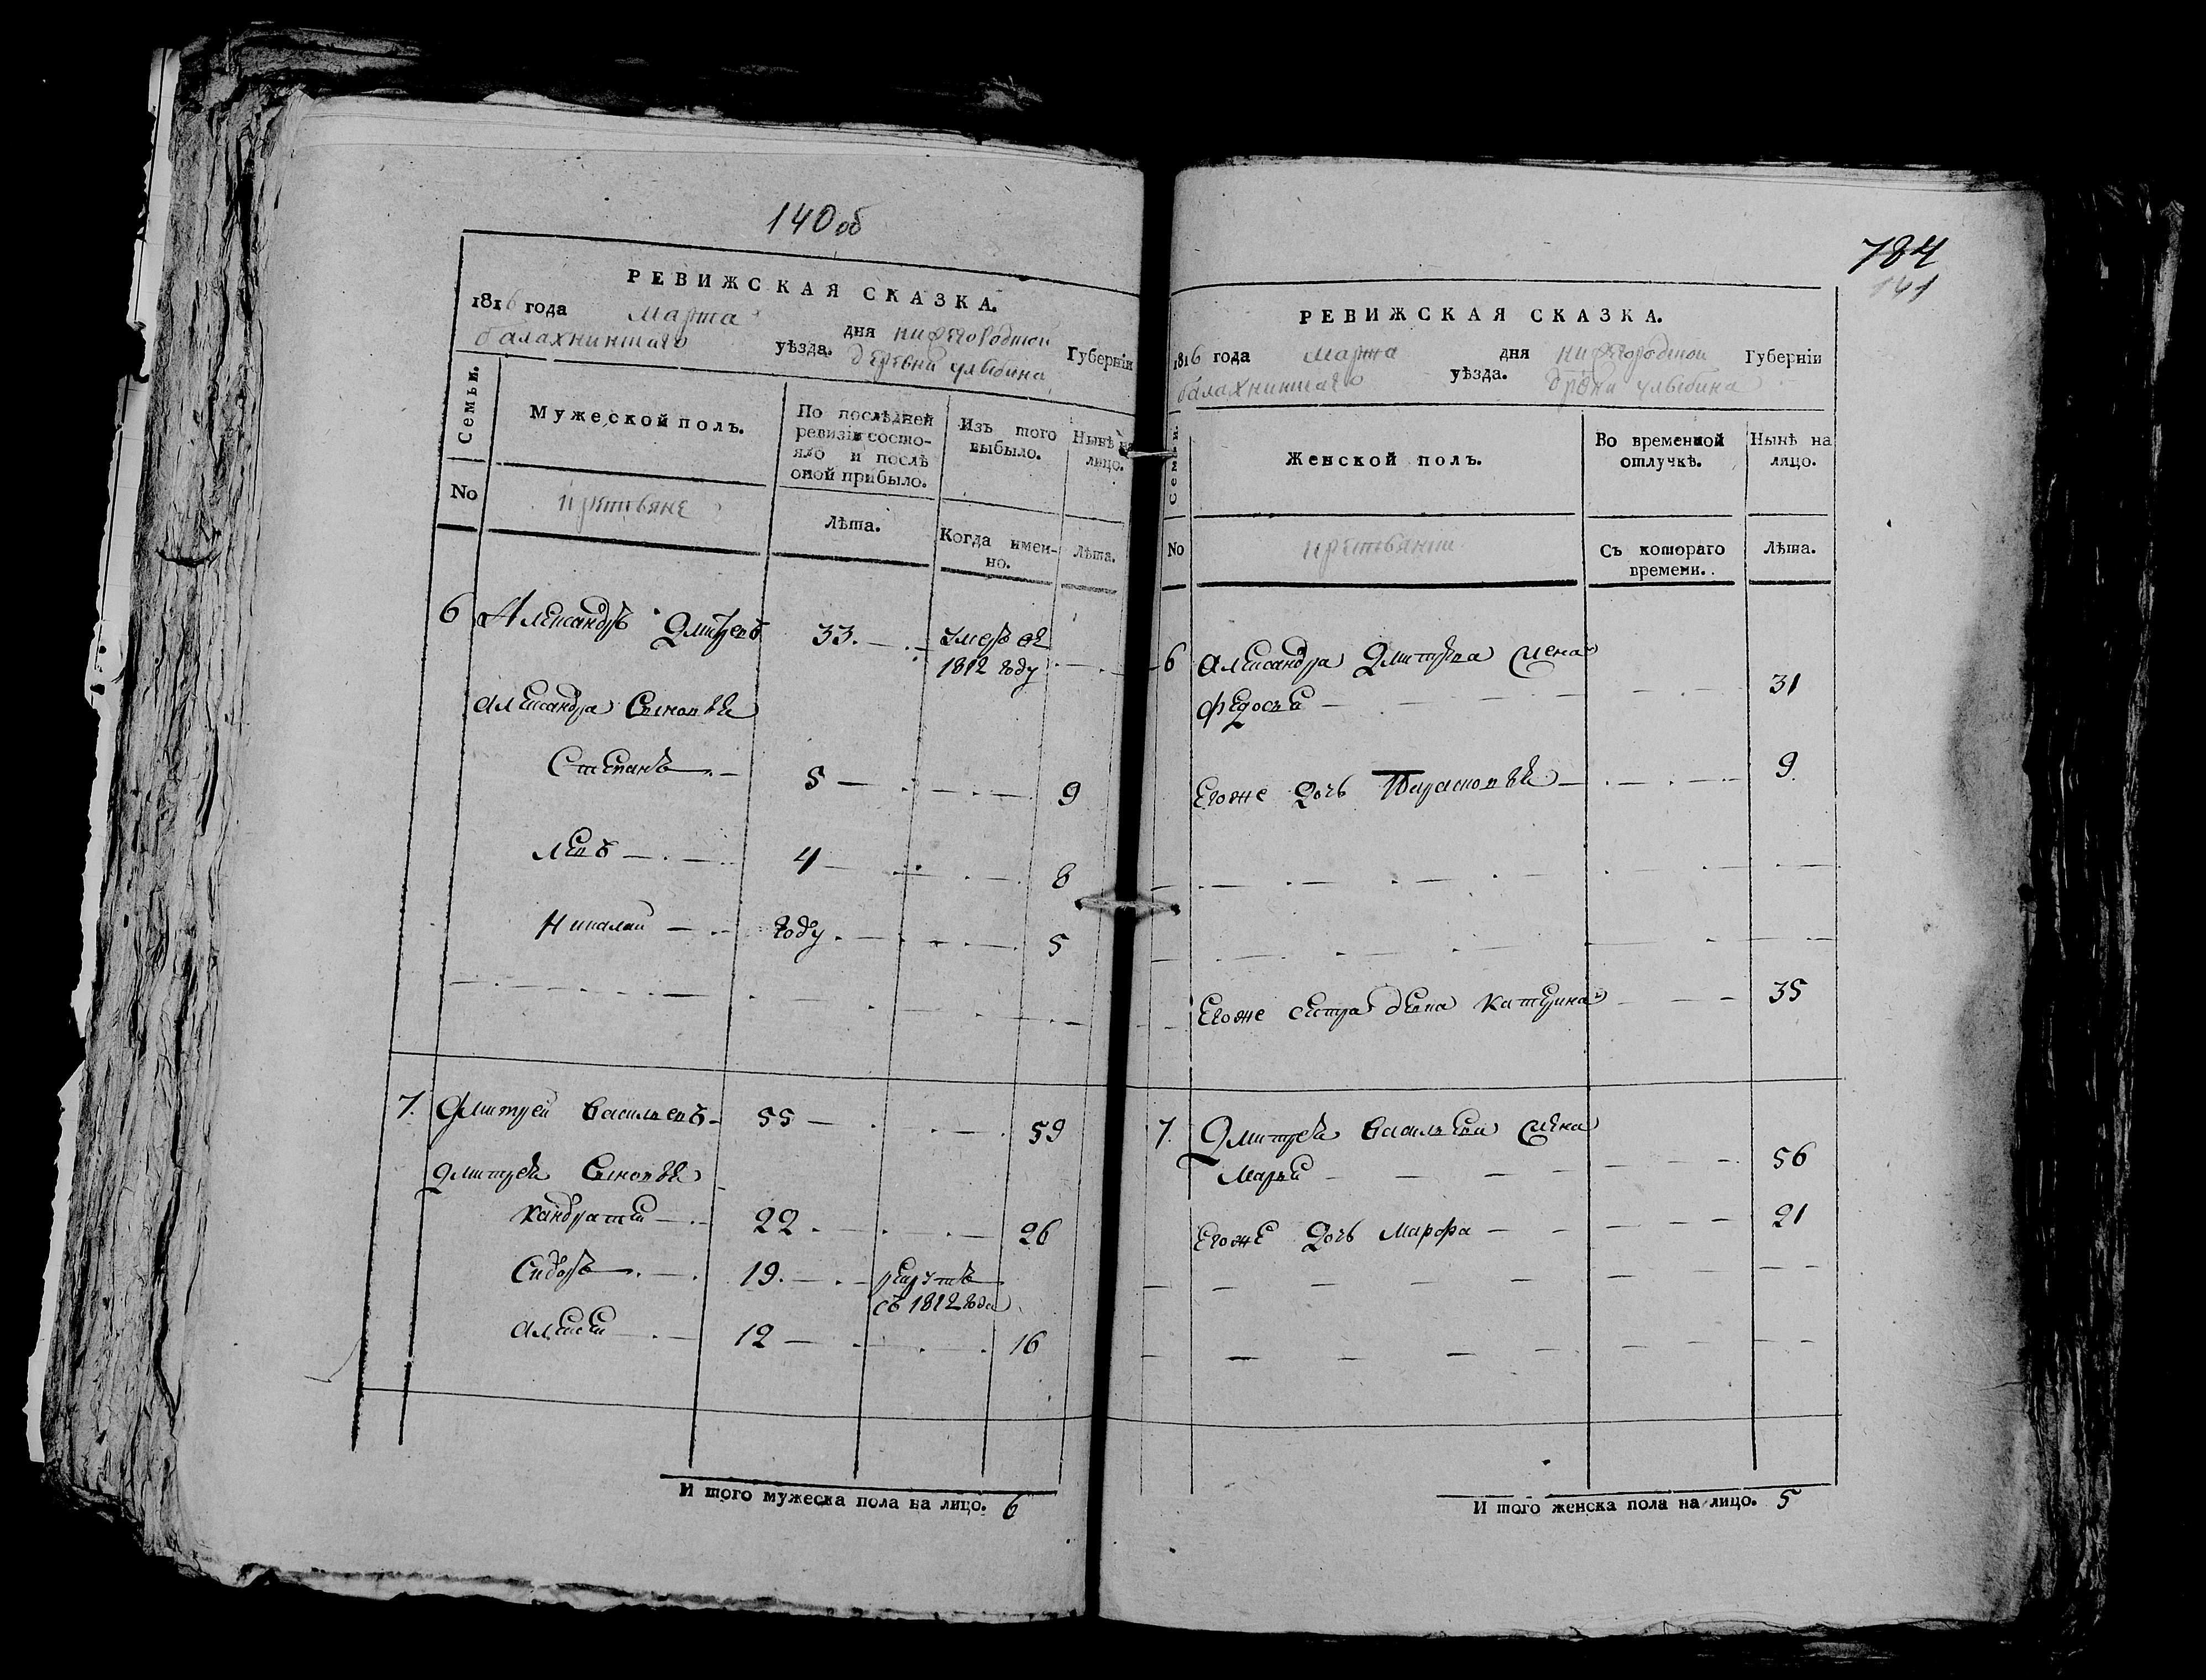 140 об
РЕВИЖСКАЯ СКАЗКА.
1816 года Марта дня нижегородской Губерніи
балахнинскаго уѣзда. деревни улыбина
Семьи.
Мужеской полъ.
По послѣдней
ревизіи состо-
яло и послѣ
оной прибыло.
Изъ того
выбыло.
Нынѣ на
лицо.
No
крестьяне
Лѣта.
Когда имен-
но.
Лѣта.
6 Александръ Дмитревъ 33. умеръ въ
1812 году
Александра Сыновья
Степанъ 5 9
Левъ 4 8
Николай году 5
7. Дмитрей Васильевъ 55 59
Дмитрея Сыновья
Кандратей 22 26
Сидоръ 19. рекрутъ
съ 1812 года
Алексей 12 16
И того мужеска пола на лицо. 6
784
141
РЕВИЖСКАЯ СКАЗКА.
1816 года марта дня нижегородской Губерніи
балахнинскаго уѣзда. дрвни улыбина
Семьи.
Женской полъ.
Во временной
отлучкѣ.
Нынѣ на
лицо.
No
крестьянки
Съ котораго
времени.
Лѣта.
6 Александра Дмитрева жена
Федосья 31
Егоже Дочь Парасковья 9
Егоже сестра девка Катерина 35
7. Дмитрея Васильева жена
Марья 56
Егоже Дочь Марфа 21
И того женска пола на лицо. 5